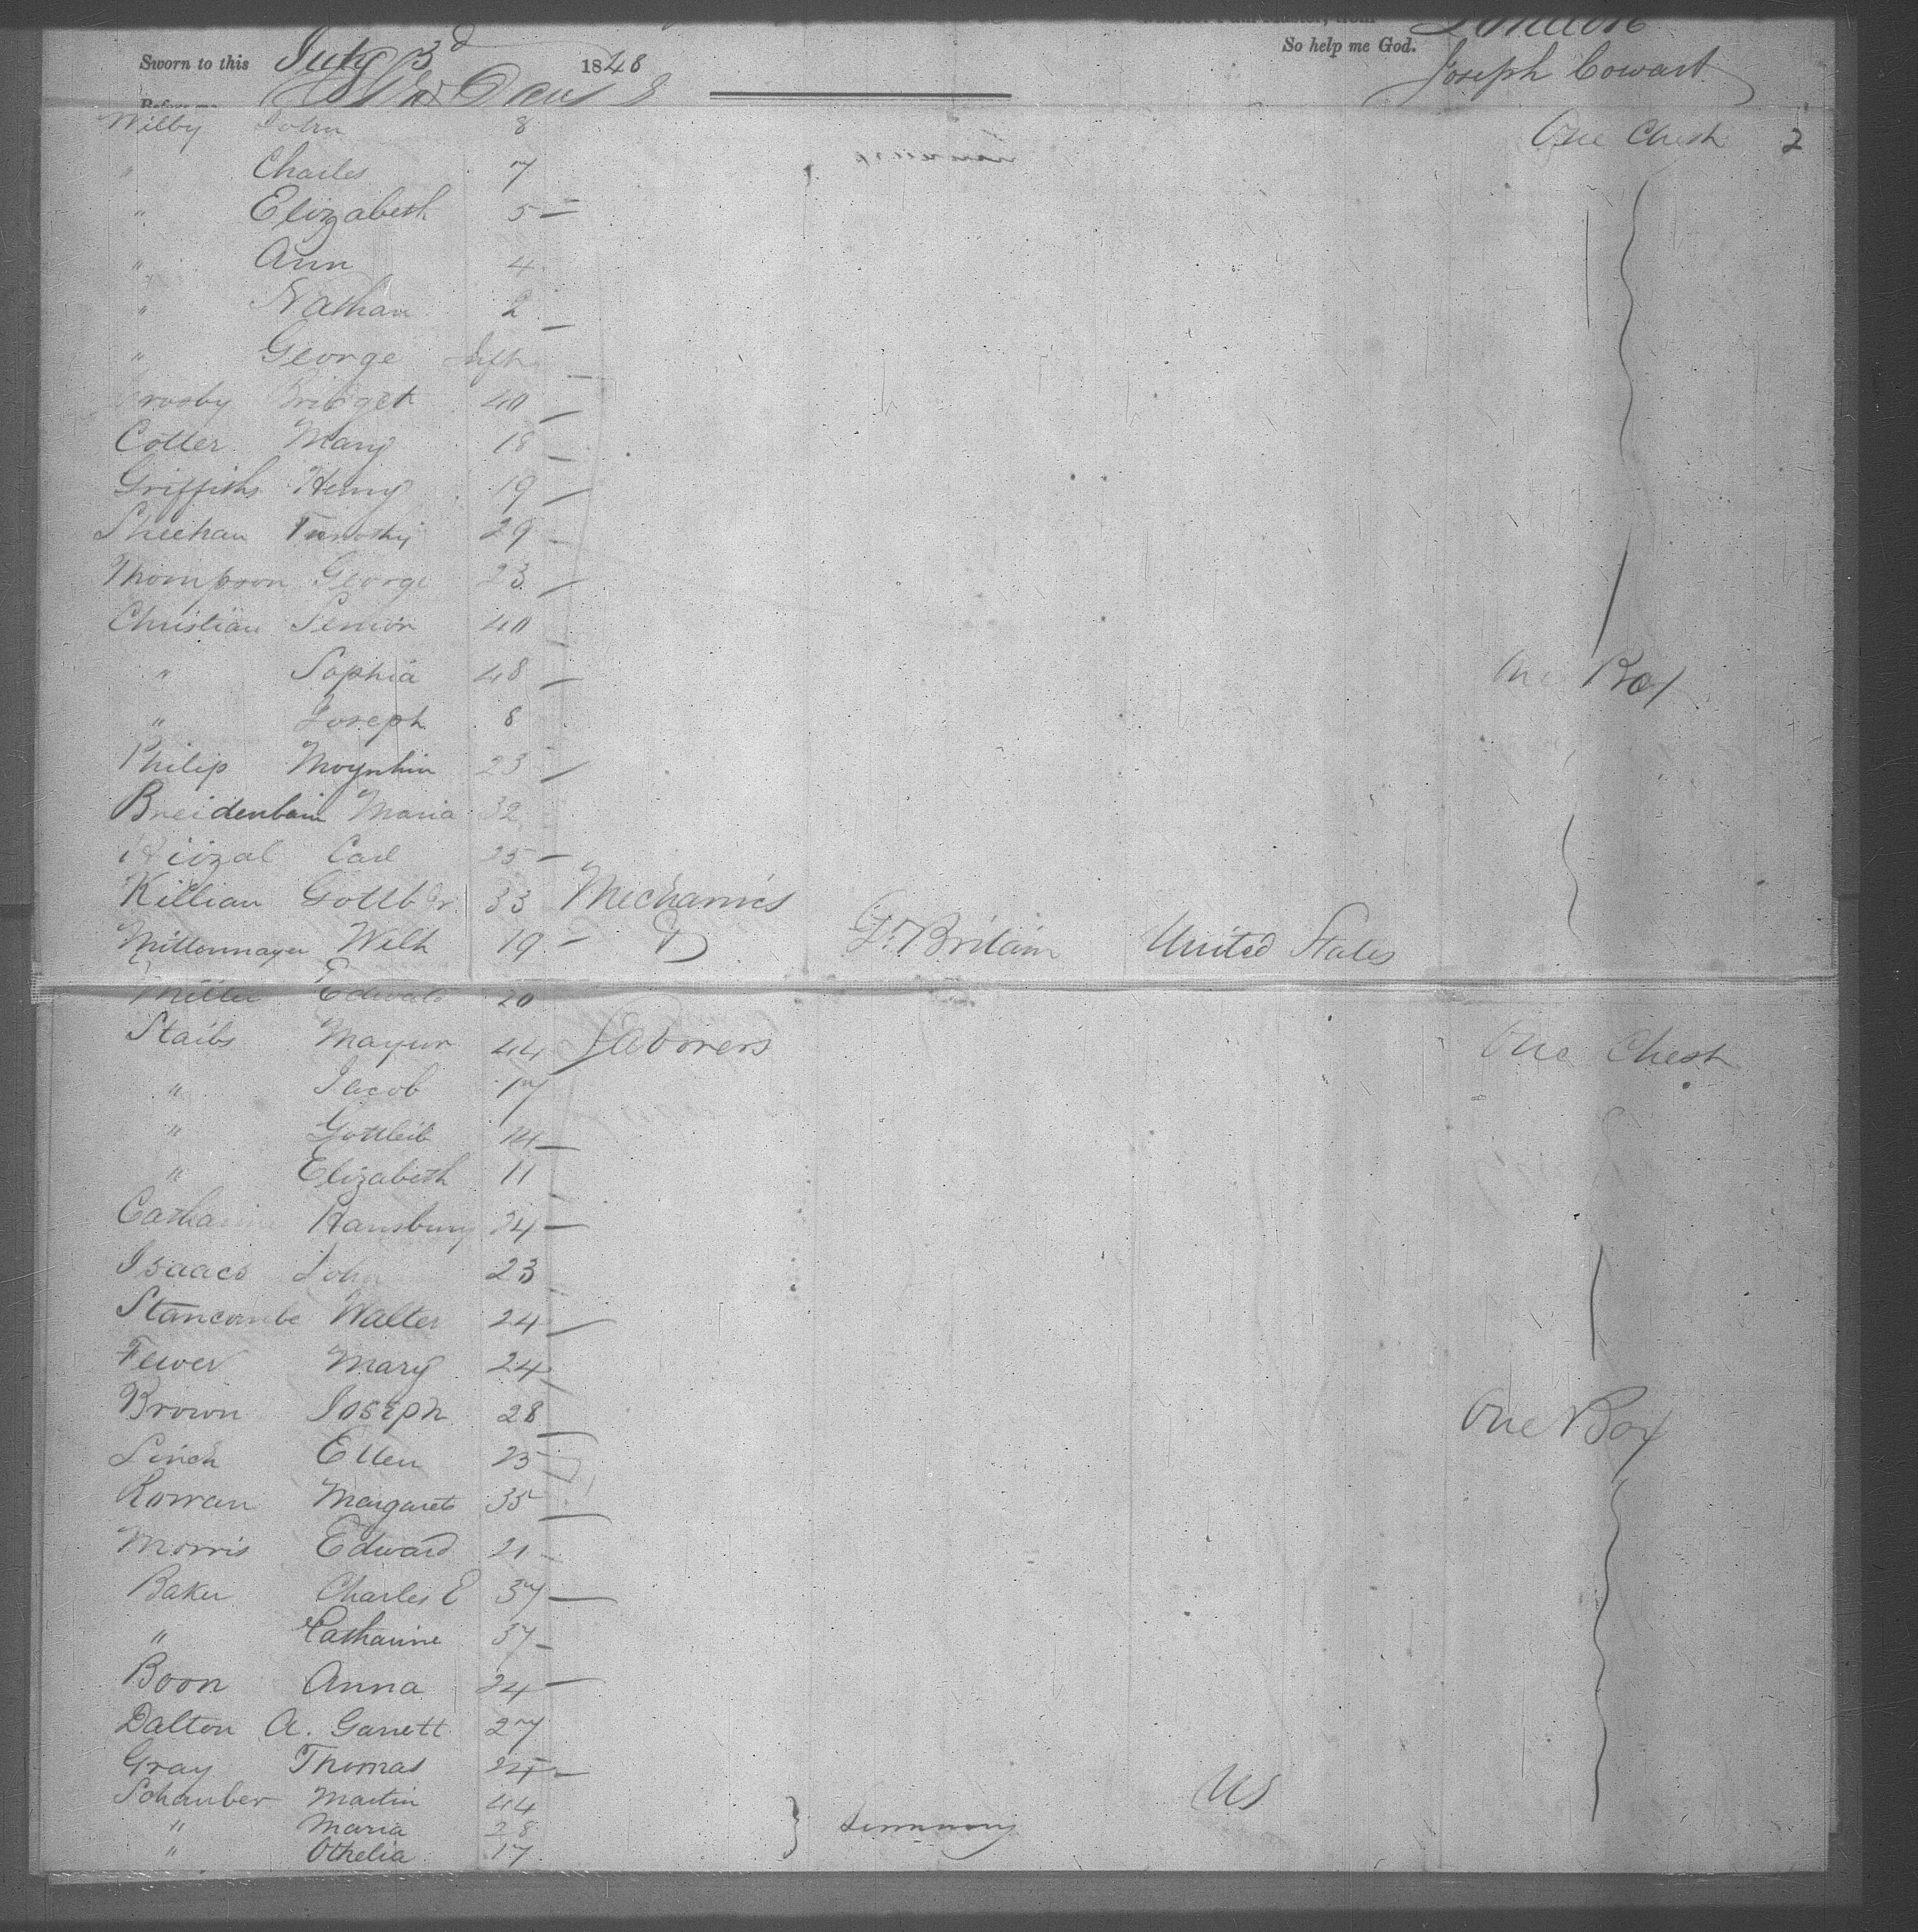 London
So help me God.
Sworn to this July 3d 1848
Joseph Cowart
Wilby John 8 One Chest 2
" Charles 7
" Elizabeth 5
" Ann 4
" Nathan 2
" George Inft
Crosby Bridget 40
Cotter Mary 18
Griffiths Henry 19
Sheehan Timothy 29
Thompson George 23
Christian Senior 40
" Sophia 48 One Box
" Joseph 8
Philip Moynhin 23
Breidenbain Maria 32
Carl 25
Killian Gottb 33 Mechanics
Mittonmayer Wilh 19 D Gt Britain United States
Miller Edward 20
Staibs 44 Laborers One Chest
" Jacob 17
" Gottleib 14
" Elizabeth 11
Catharine Hansbury 24
Isaacs John 23
Stancombe Walter 24
Fewer Mary 24
Brown Joseph 28 One Box
Linch Ellen 25
Rowan Margaret 35
Morris Edward 21
Baker Charles E 37
" Catharine 37
Boon Anna 24
Dalton A. Garrett 27
Gray Thomas
Schauber Martin 44 US
" Maria 28
" Othelia 17